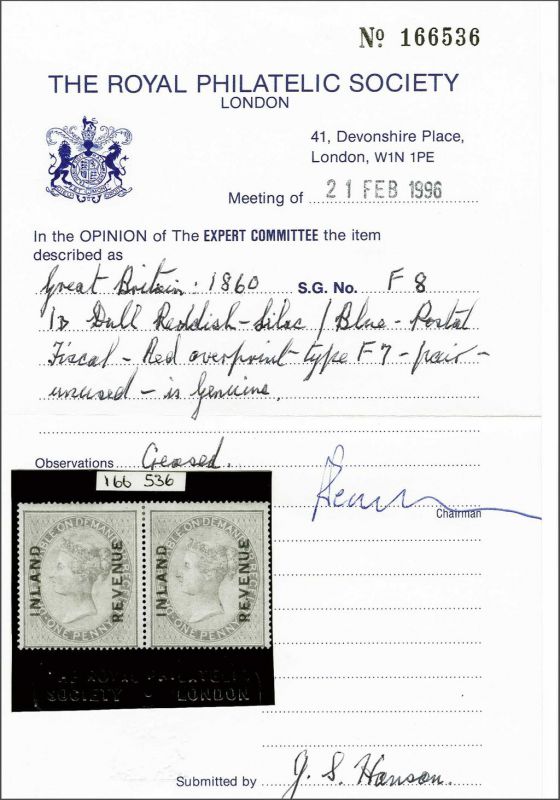 Nº 166536
THE ROYAL PHILATELIC SOCIETY
LONDON
41, Devonshire Place,
London, W1N 1PE
Meeting of 21 FEB 1996
In the OPINION of The EXPERT COMMITTEE the item
described as
Great Britain. 1860 S.G. No. F 8
1D Dull Reddish-Lilac / Blue - Postal
Fiscal - Red overprint - type F7 - pair -
unused - is Genuine.
Observations Creased.
Chairman
166 536
INLAND REVENUE
INLAND REVENUE
THE ROYAL PHILATELIC
SOCIETY LONDON
Submitted by J. S. Hanson.